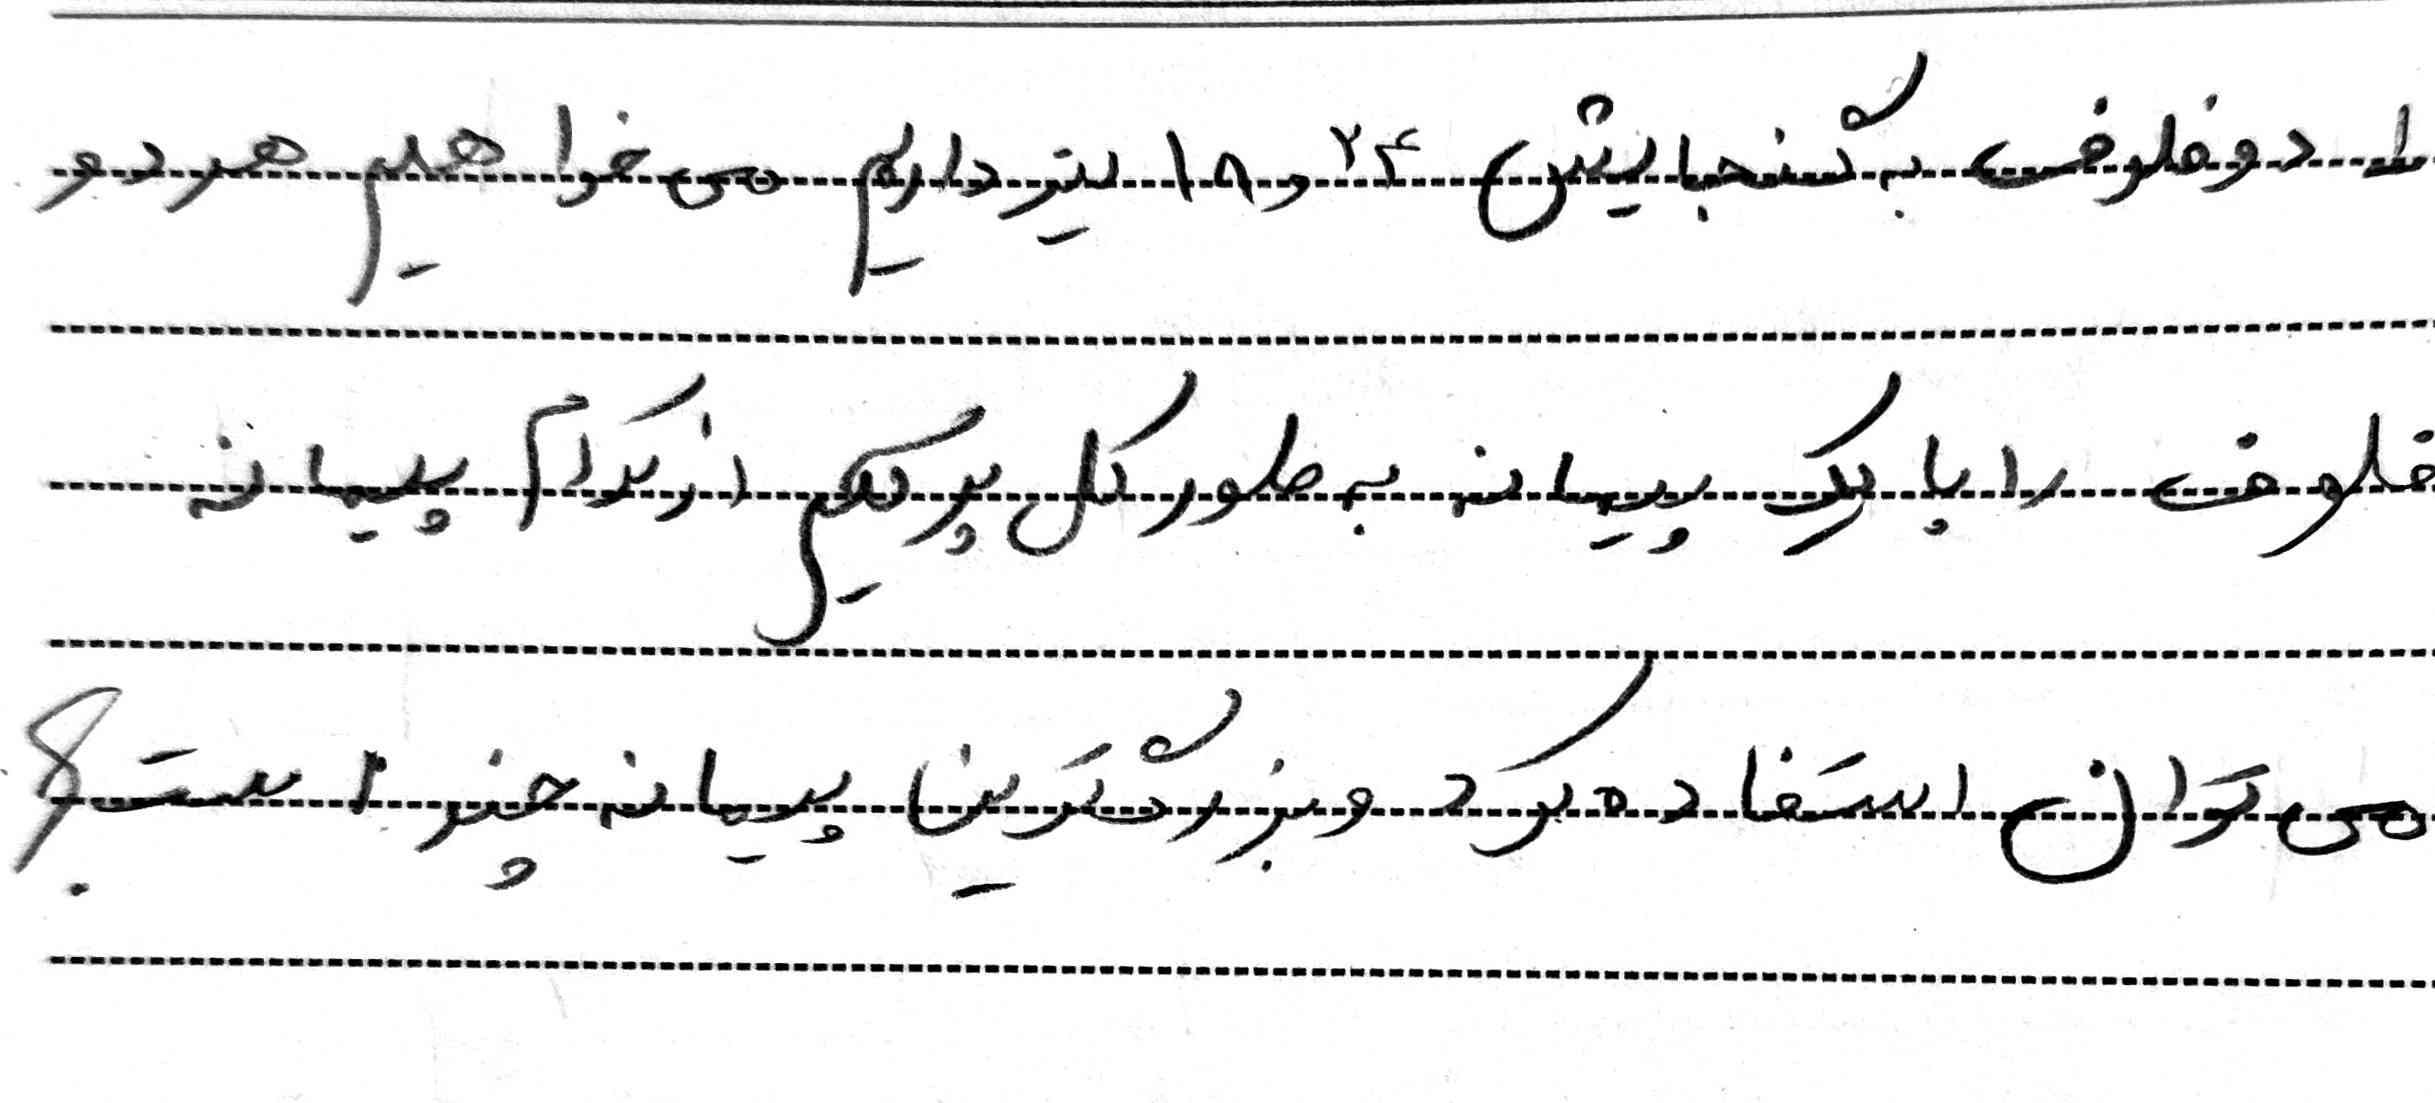 ۱ـ دو ظرف به گنجایش ۲۴ و ۱۸ لیتر داریم می‌خواهیم هر دو
ظرف را با یک پیمانه به طور کل پر کنیم از کدام پیمانه
می‌توان استفاده کرد و بزرگ‌ترین پیمانه چند است؟